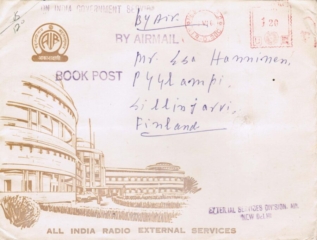 ON INDIA GOVERNMENT SERVICE
By Air
BY AIRMAIL
120
AIR
Mr Esa Hänninen,
BOOK POST
Pyylampi,
Siilinjarvi,
Finland
EXTERNAL SERVICES DIVISION, AIR
NEW DELHI
ALL INDIA RADIO EXTERNAL SERVICES